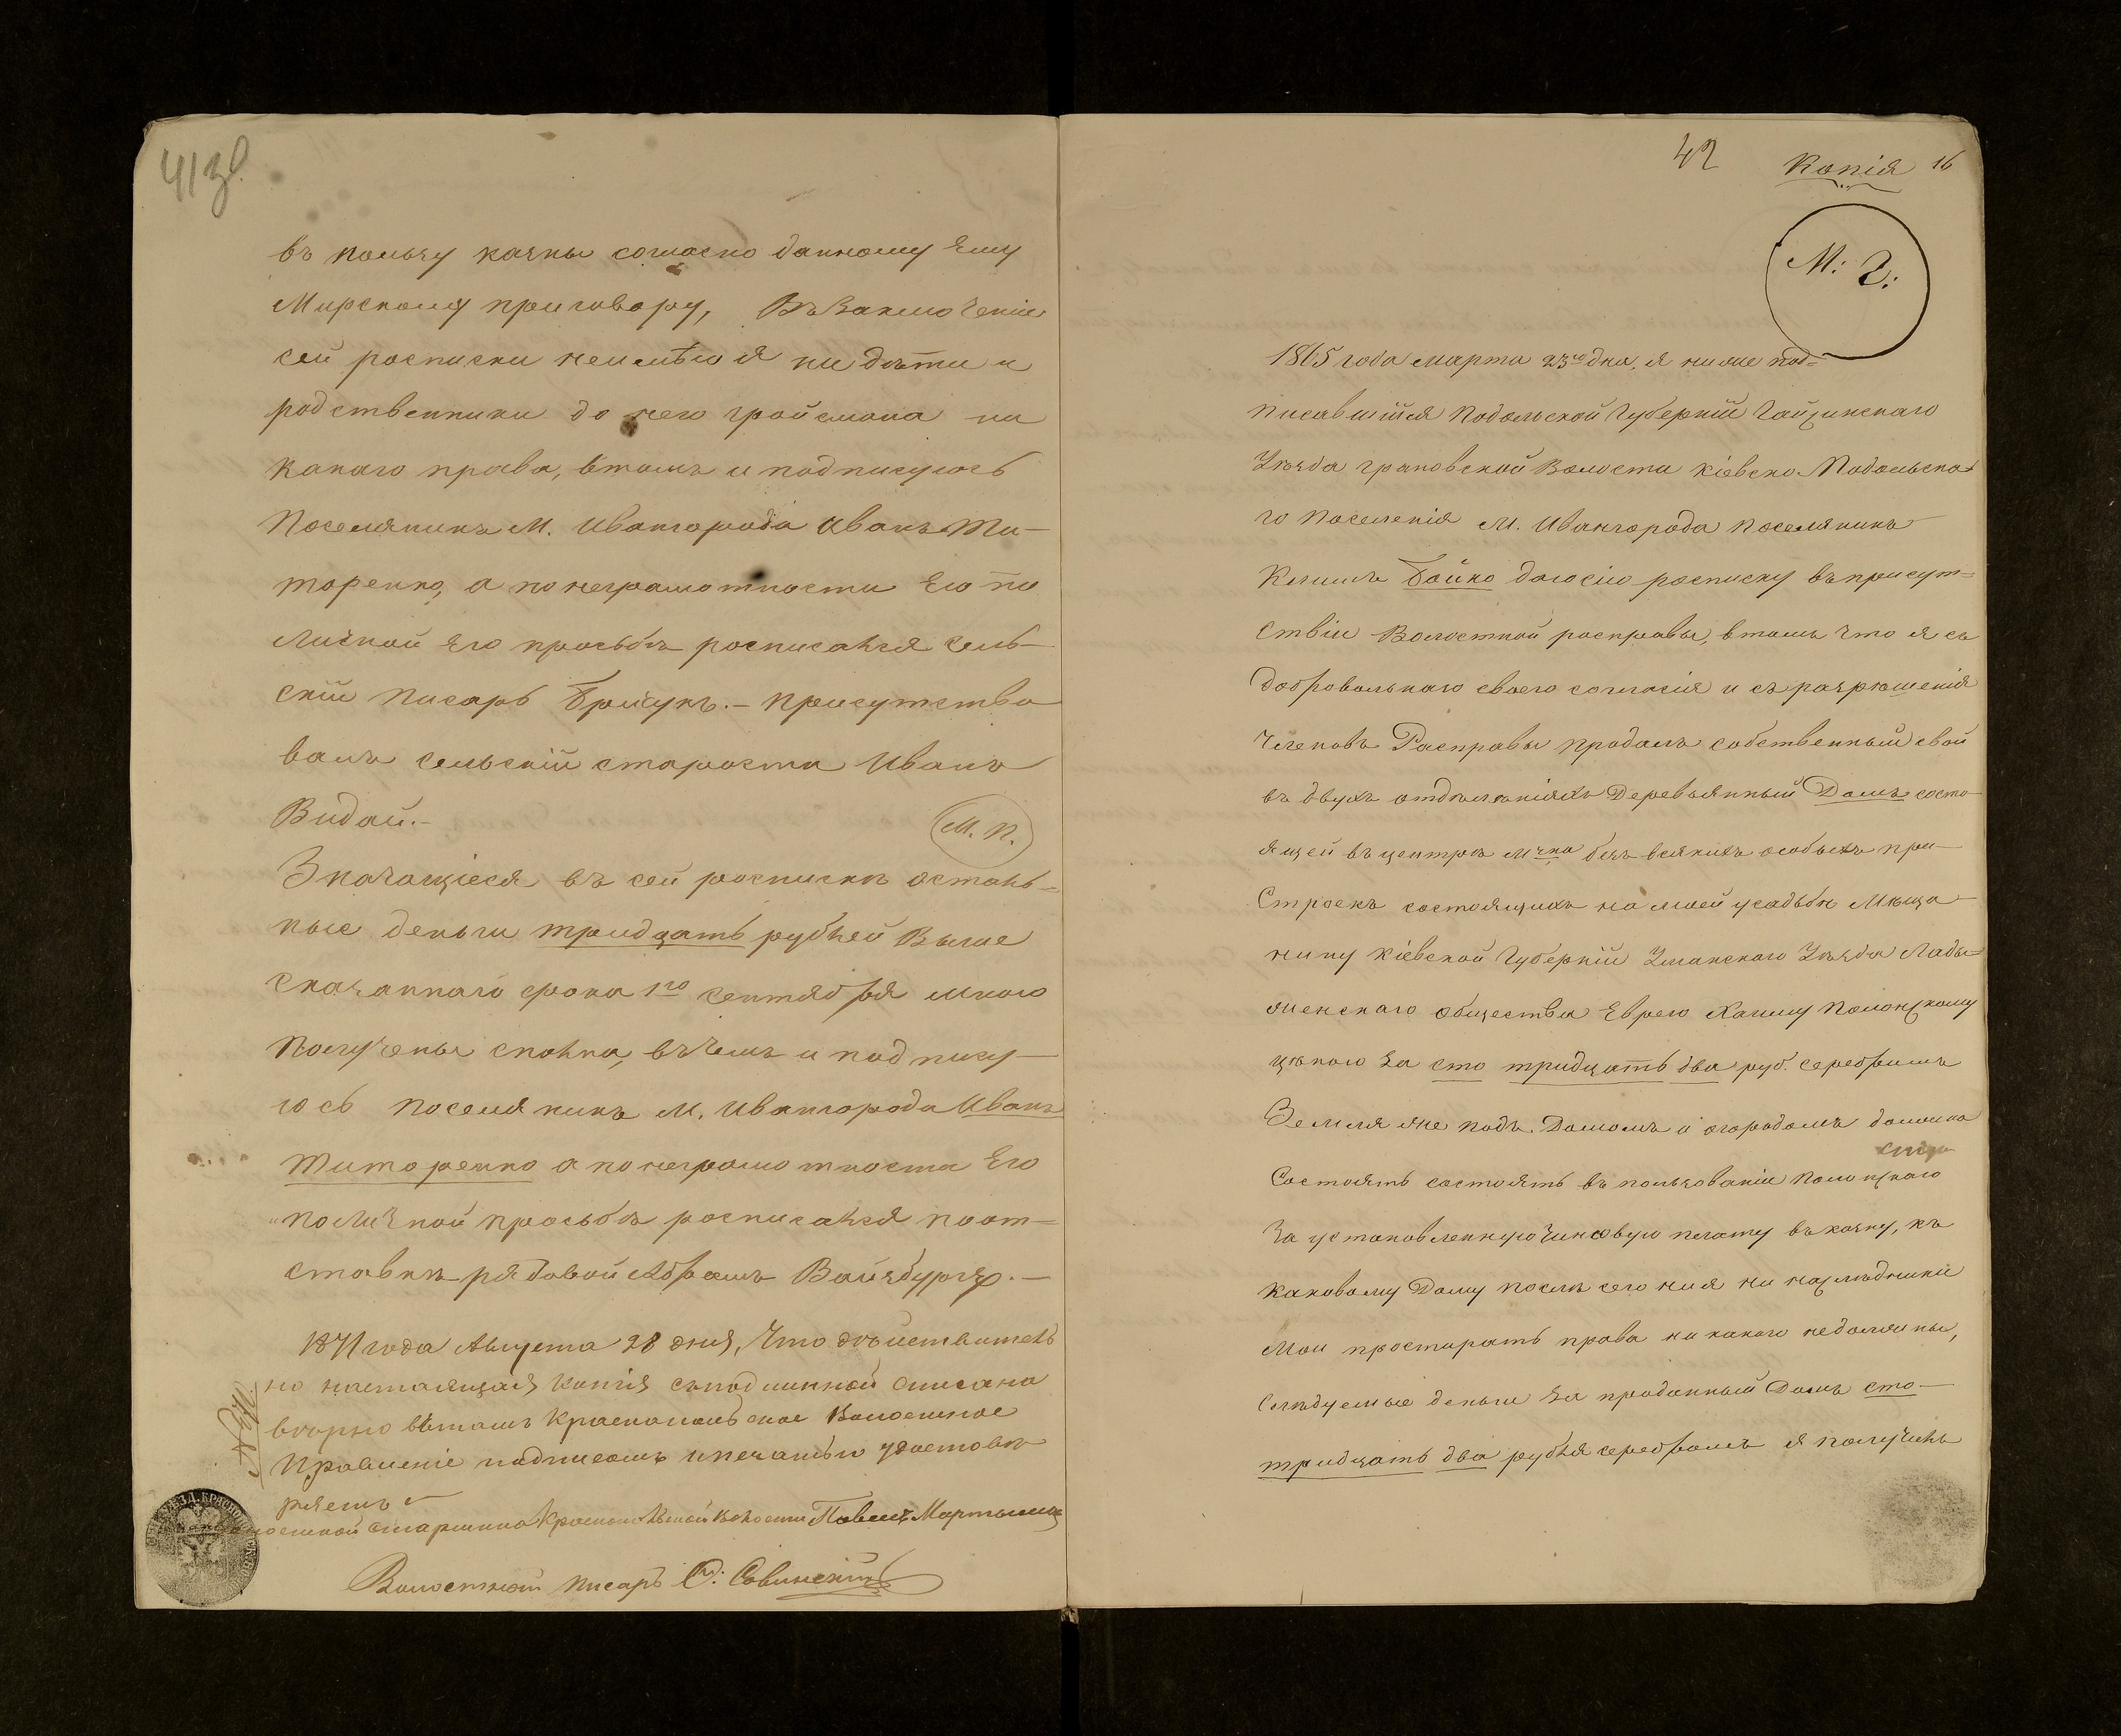 41 зв.
въ пользу казны согласно данному Ему
Мирскому приговору, Въ Заключеніи
сей росписки неимѣю я ни дѣти и
родственники до него Гройсмана ни
какаго права, втомъ и подписуюсь
Поселянинъ М. Ивангорода Иванъ Ти-
торенко, а по неграмотности Его по
личной его прозьбѣ росписался Сель-
скій Писарь Брицунъ.- Присутство
валъ сельскій староста Иванъ
Видай.-
М. П.
Значащіеся въ сей роспискѣ осталь-
ные деньги тридцать рублей Выше
сказаннаго срока 1го сентября мною
Получены сполна, въ чемъ и подпису-
юсь Поселянинъ М. Ивангорода Иванъ
Титоренко а по неграмотности Его
поличной просьбѣ росписался по от-
ставкѣ рядовой Абрамъ Вайзбургъ.-
1871 года Августа 28 дня, Что дѣйствитель
но настоящая копія съ подлинной списана
вѣрно вътомъ Краснопольское Волостное
Правленіе подписомъ и печатью удостовѣ
ряетъ
Волостной Старшина Краснопольской Волости Павелъ Мартынюк
Волостной Писарь С. Савинскій
42
Копія 16
М: Г:
1865 года марта 23го дня, я ниже под-
писавшійся Подольской Губерніи Гайсинскаго
Уѣзда Грановской Волости Кіевско-Подольска
го Поселенія М. Ивангорода Поселянинъ
Климъ Бойко даю сію росписку въ присут-
ствіи Волостной росправы, втомъ что я съ
добровольнаго своего согласія и съ разрѣшенія
Членовъ Росправы продалъ собственный свой
въ двухъ отдѣленіяхъ Деревянный Домъ состо
ящей въ центрѣ мчка безъ всякихъ особыхъ при-
Строекъ состоящихъ на моей усадьбѣ Мѣща-
нину Кіевской Губерніи Уманскаго Уѣзда Лады-
женскаго общества Еврею Хаиму Полонскому
цѣною за сто тридцать два руб. серебромъ
Земля же подъ Домомъ и огородомъ должна
Состоять состоять въ пользованіи Полонскаго
За установленную Чиншовую плату въ казну, къ
каковому Дому послѣ сего ни я ни наслѣдники
Мои простирать права никакого недолжны,
Слѣдуемые деньги за проданный Домъ сто-
тридцать два рубля серебромъ я получилъ